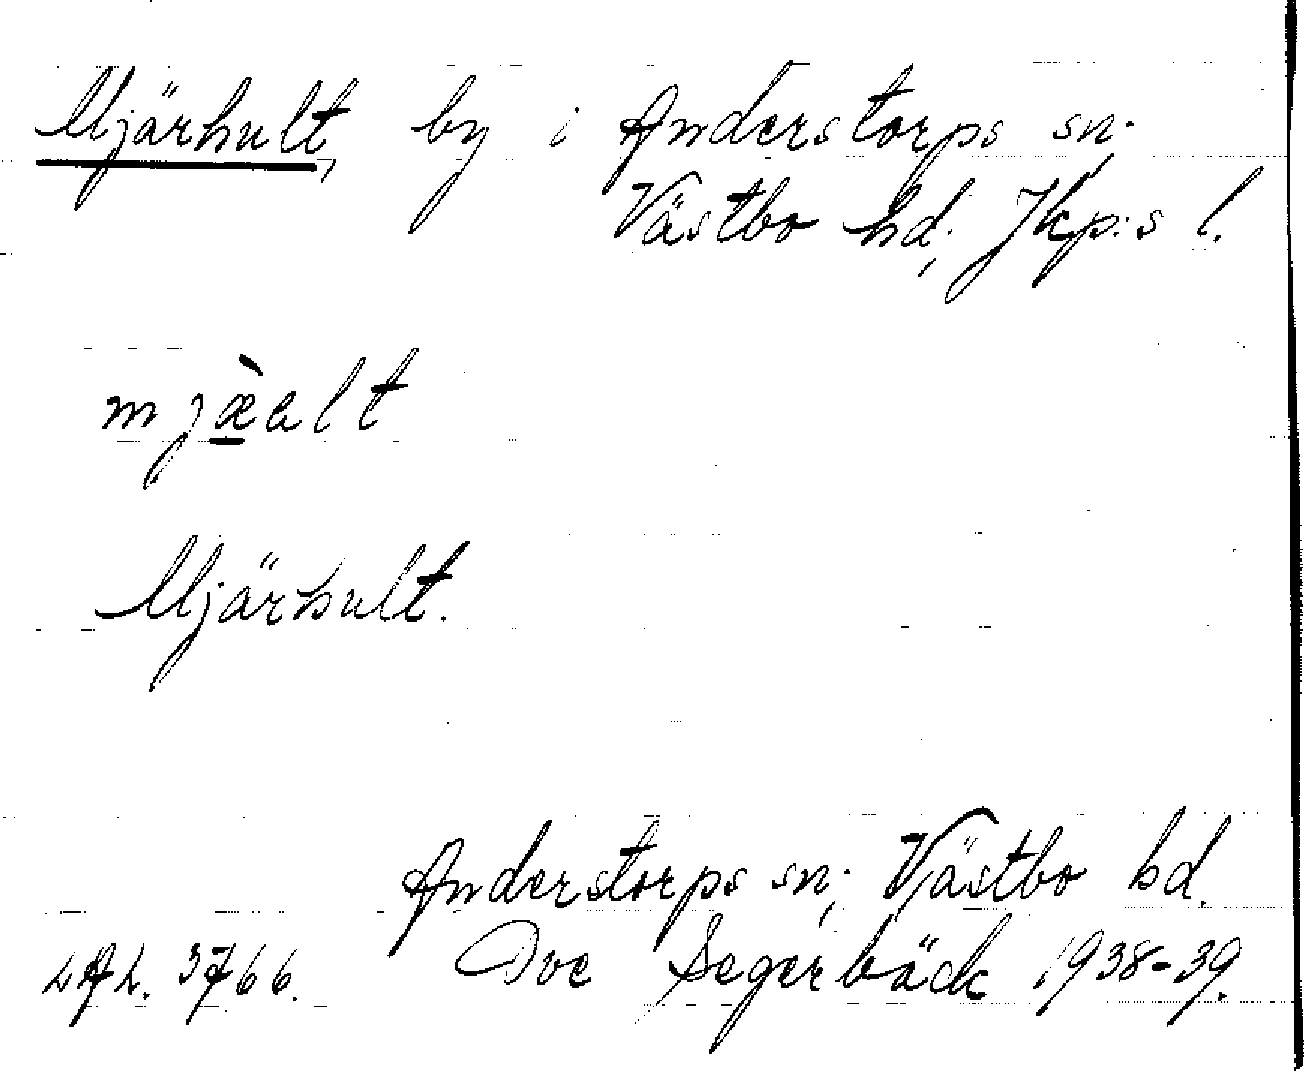 Mjärhult, by i Anderstorps sn.
Västbo hd, Jkp:s l.
mjæ̀alt
Mjärhult.
Anderstorps sn, Västbo hd.
LAL. 3766. Ove Segerbäck 1938-39.